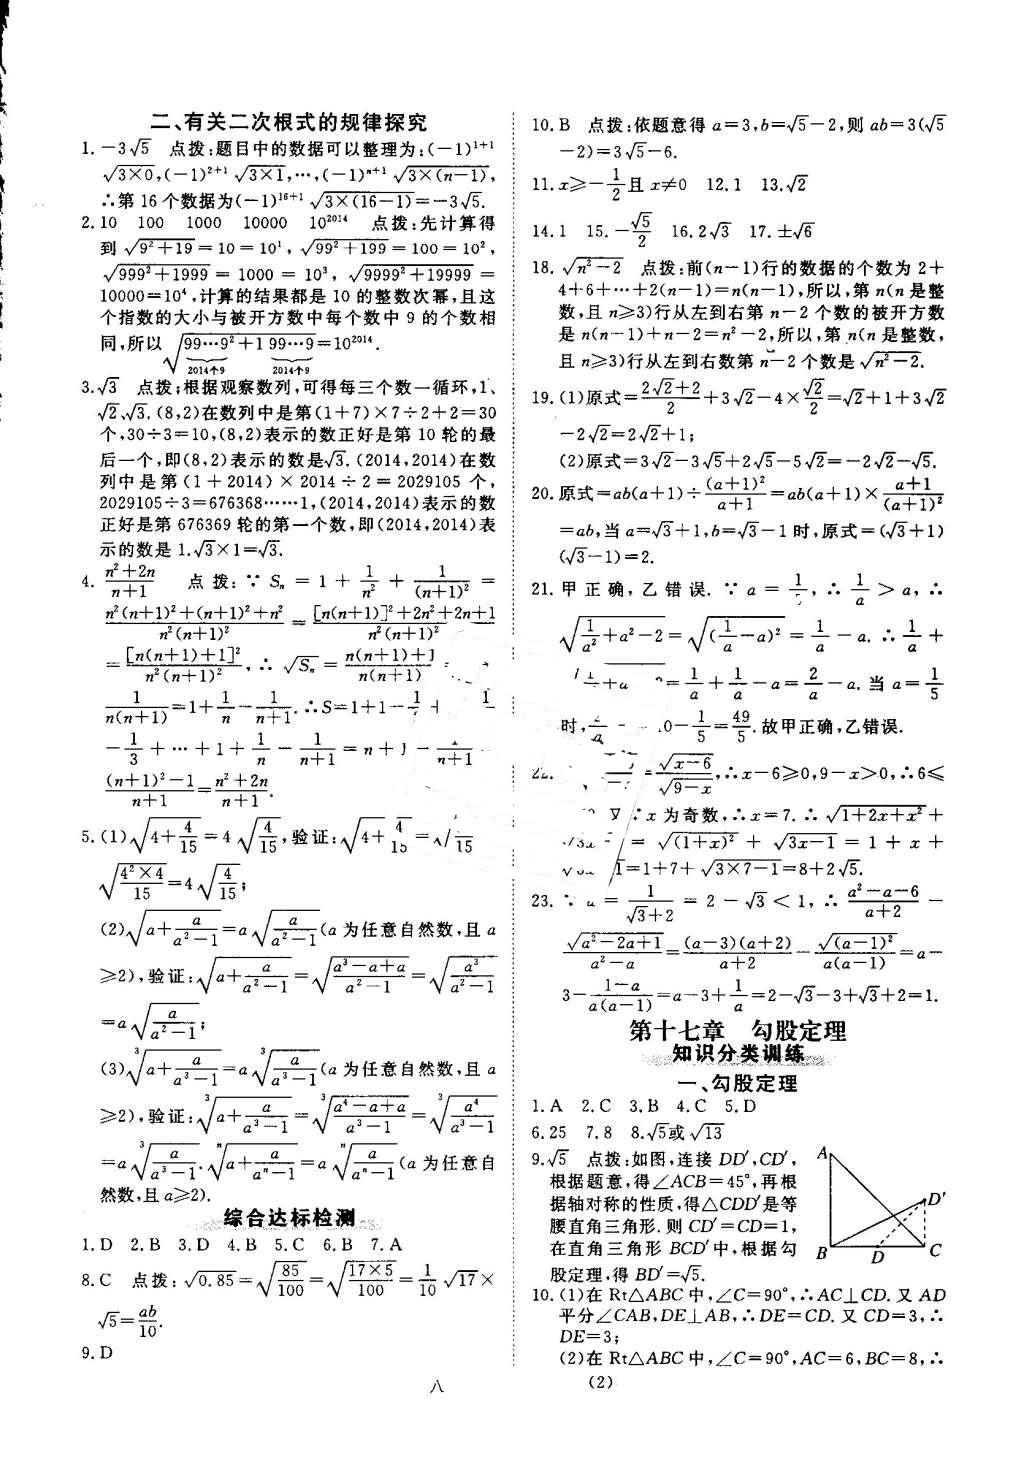 二、有关二次根式的规律探究
1. －3√5　点拨:题目中的数据可以整理为:(－1)¹⁺¹
√(3×0),(－1)²⁺¹ √(3×1),…,(－1)ⁿ⁺¹ √(3×(n－1)),
∴第 16 个数据为(－1)¹⁶⁺¹ √(3×(16－1))=－3√5.
2. 10　100　1000　10000　10²⁰¹⁴　点拨:先计算得
到 √(9²＋19)=10=10¹, √(99²＋199)=100=10²,
√(999²＋1999)=1000=10³, √(9999²＋19999)=
10000=10⁴,计算的结果都是 10 的整数次幂,且这
个指数的大小与被开方数中每个数中 9 的个数相
同,所以 √(99…9²＋1 99…9)=10²⁰¹⁴.
2014个9　2014个9
3. √3　点拨:根据观察数列,可得每三个数一循环,1、
√2、√3. (8,2)在数列中是第(1＋7)×7÷2＋2=30
个,30÷3=10,(8,2)表示的数正好是第 10 轮的最
后一个,即(8,2)表示的数是√3. (2014,2014)在数
列中是第(1＋2014)×2014÷2=2029105 个,
2029105÷3=676368……1,(2014,2014)表示的数
正好是第 676369 轮的第一个数,即(2014,2014)表
示的数是 1. √3×1=√3.
4. (n²＋2n)/(n＋1)　点拨:∵Sₙ=1＋1/n²＋1/(n＋1)²=
(n²(n＋1)²＋(n＋1)²＋n²)/(n²(n＋1)²)=([n(n＋1)]²＋2n²＋2n＋1)/(n²(n＋1)²)
=[n(n＋1)＋1]²/(n²(n＋1)²),∴√Sₙ=(n(n＋1)＋1)/(n(n＋1))
1/(n(n＋1))=1＋1/n－1/(n＋1).∴S=1＋1－
－1/3＋…＋1＋1/n－1/(n＋1)=n＋1－1/(n＋1)
((n＋1)²－1)/(n＋1)=(n²＋2n)/(n＋1).
5. (1)√(4＋4/15)=4√(4/15),验证:√(4＋4/15)=
√((4²×4)/15)=4√(4/15);
(2)√(a＋a/(a²－1))=a√(a/(a²－1))(a 为任意自然数,且 a
≥2),验证:√(a＋a/(a²－1))=√((a³－a＋a)/(a²－1))=√(a³/(a²－1))
=a√(a/(a²－1));
(3)∛(a＋a/(a³－1))=a∛(a/(a³－1))(a 为任意自然数,且 a
≥2),验证:∛(a＋a/(a³－1))=∛((a⁴－a＋a)/(a³－1))=∛(a⁴/(a³－1))
=a∛(a/(a³－1)).ⁿ√(a＋a/(aⁿ－1))=aⁿ√(a/(aⁿ－1))(a 为任意自
然数,且 a≥2).
综合达标检测
1. D　2. B　3. D　4. B　5. C　6. B　7. A
8. C　点拨:√0.85=√(85/100)=√((17×5)/100)=1/10 √17×
√5=ab/10.
9. D
10. B　点拨:依题意得 a=3,b=√5－2,则 ab=3(√5
－2)=3√5－6.
11. x≥－1/2且 x≠0　12. 1　13. √2
14. 1　15. －√5/2　16. 2√3　17. ±√6
18. √(n²－2)　点拨:前(n－1)行的数据的个数为 2＋
4＋6＋…＋2(n－1)=n(n－1),所以,第 n(n 是整
数,且 n≥3)行从左到右第 n－2 个数的被开方数
是 n(n－1)＋n－2=n²－2,所以,第 n(n 是整数,
且 n≥3)行从左到右数第 n－2 个数是 √(n²－2).
19. (1)原式=(2√2＋2)/2＋3√2－4×√2/2=√2＋1＋3√2
－2√2=2√2＋1;
(2)原式=3√2－3√5＋2√5－5√2=－2√2－√5.
20. 原式=ab(a＋1)÷(a＋1)²/(a＋1)=ab(a＋1)×(a＋1)/(a＋1)²
=ab,当 a=√3＋1,b=√3－1 时,原式=(√3＋1)
(√3－1)=2.
21. 甲正确,乙错误. ∵a=,∴1/a>a,∴
√(1/a²＋a²－2)=√((1/a－a)²)=1/a－a.∴1/a＋
=1/a＋1/a－a=2/a－a. 当 a=1/5
时,－1/5=49/5.故甲正确,乙错误.
=√(x－6)/√(9－x),∴x－6≥0,9－x>0,∴6≤
∵x 为奇数,∴x=7. ∴√(1＋2x＋x²)＋
=√((1＋x)²)＋√(3x－1)=1＋x＋
=1＋7＋√(3×7－1)=8＋2√5.
23. ∵a=1/(√3＋2)=2－√3<1,∴(a²－a－6)/(a＋2)－
√(a²－2a＋1)/(a²－a)=((a－3)(a＋2))/(a＋2)－√((a－1)²)/(a(a－1))=a－
3－(1－a)/(a(a－1))=a－3＋1/a=2－√3－3＋√3＋2=1.
第十七章　勾股定理
知识分类训练
一、勾股定理
1. A　2. C　3. B　4. C　5. D
6. 25　7. 8　8. √5或√13
9. √5　点拨:如图,连接 DD′,CD′,
根据题意,得∠ACB=45°,再根
据轴对称的性质,得△CDD′是等
腰直角三角形. 则 CD′=CD=1,
在直角三角形 BCD′中,根据勾
股定理,得 BD′=√5.
A
D′
B　D　C
10. (1)在 Rt△ABC 中,∠C=90°,∴AC⊥CD. 又 AD
平分∠CAB,DE⊥AB,∴DE=CD. 又 CD=3,∴
DE=3;
(2)在 Rt△ABC 中,∠C=90°,AC=6,BC=8,∴
八
(2)